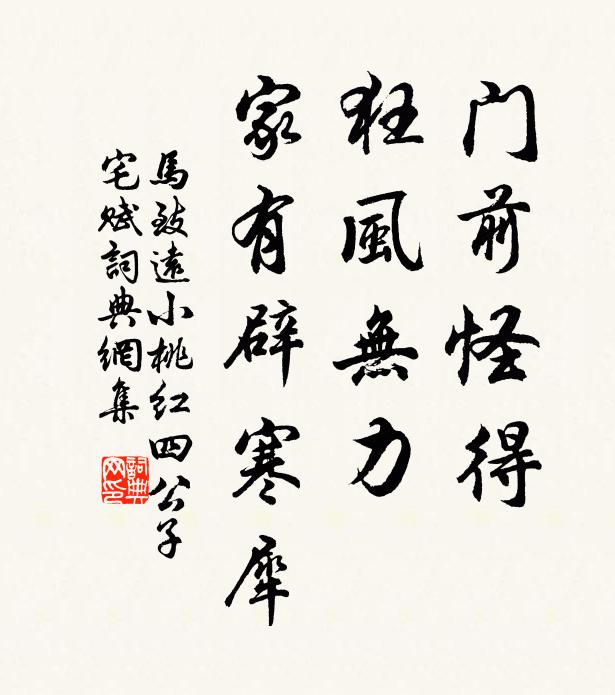 門前怪得
狂風無力
家有辟寒犀
馬致遠小桃紅四公子
宅賦詞典網集
詞典
网印